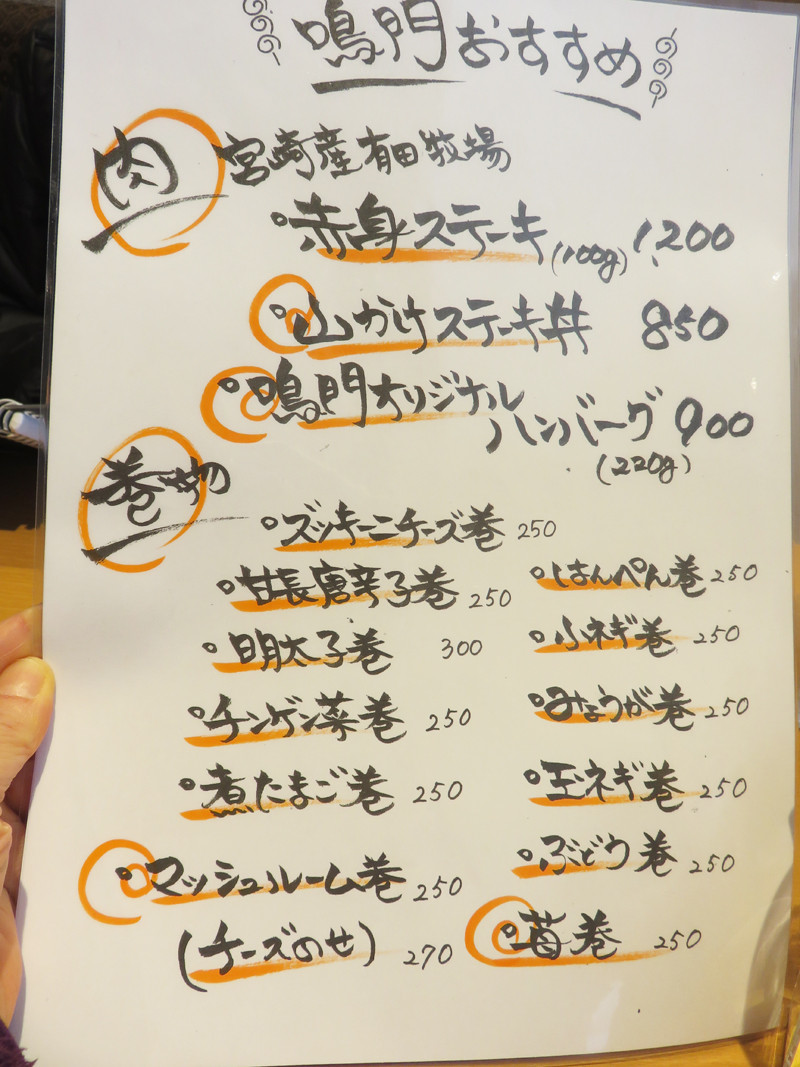 鳴門おすすめ
肉
宮崎産有田牧場
赤身ステーキ(100g) 1,200
山かけステーキ丼 850
鳴門オリジナル
ハンバーグ 900
(220g)
巻物
ズッキーニチーズ巻 250
甘長唐辛子巻 250
明太子巻 300
チンゲン菜巻 250
煮たまご巻 250
マッシュルーム巻 250
(チーズのせ) 270
はんぺん巻 250
小ネギ巻 250
みょうが巻 250
玉ネギ巻 250
ぶどう巻 250
苺巻 250